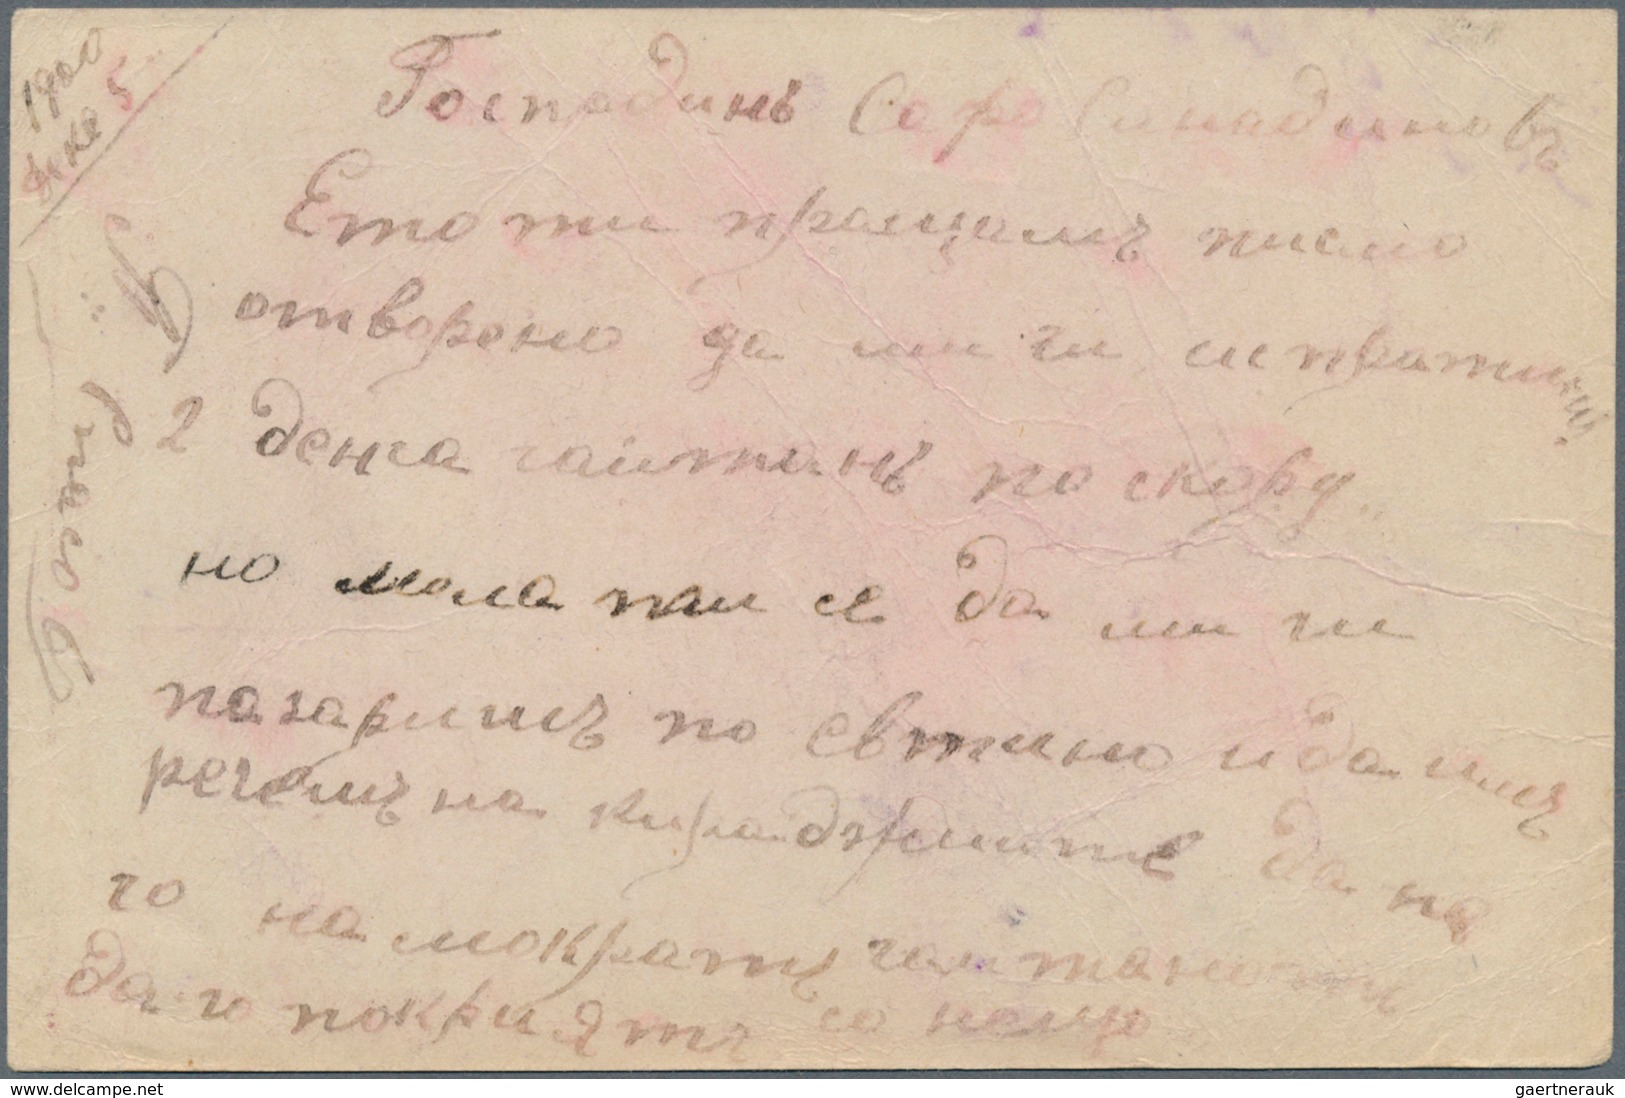 1900
Господинъ Сафо Синадиновъ
Ето ти пращамъ писмо
отворено да ми ги испратиш
2 денга гайтанъ по скоро
но мола ти се да ми ги
пазаришъ по евтино и да имъ
речешъ на кираджиите да на
го на мократъ гайтанотъ
да го покриятъ со нещо
delcampe.net
gaertnerauk